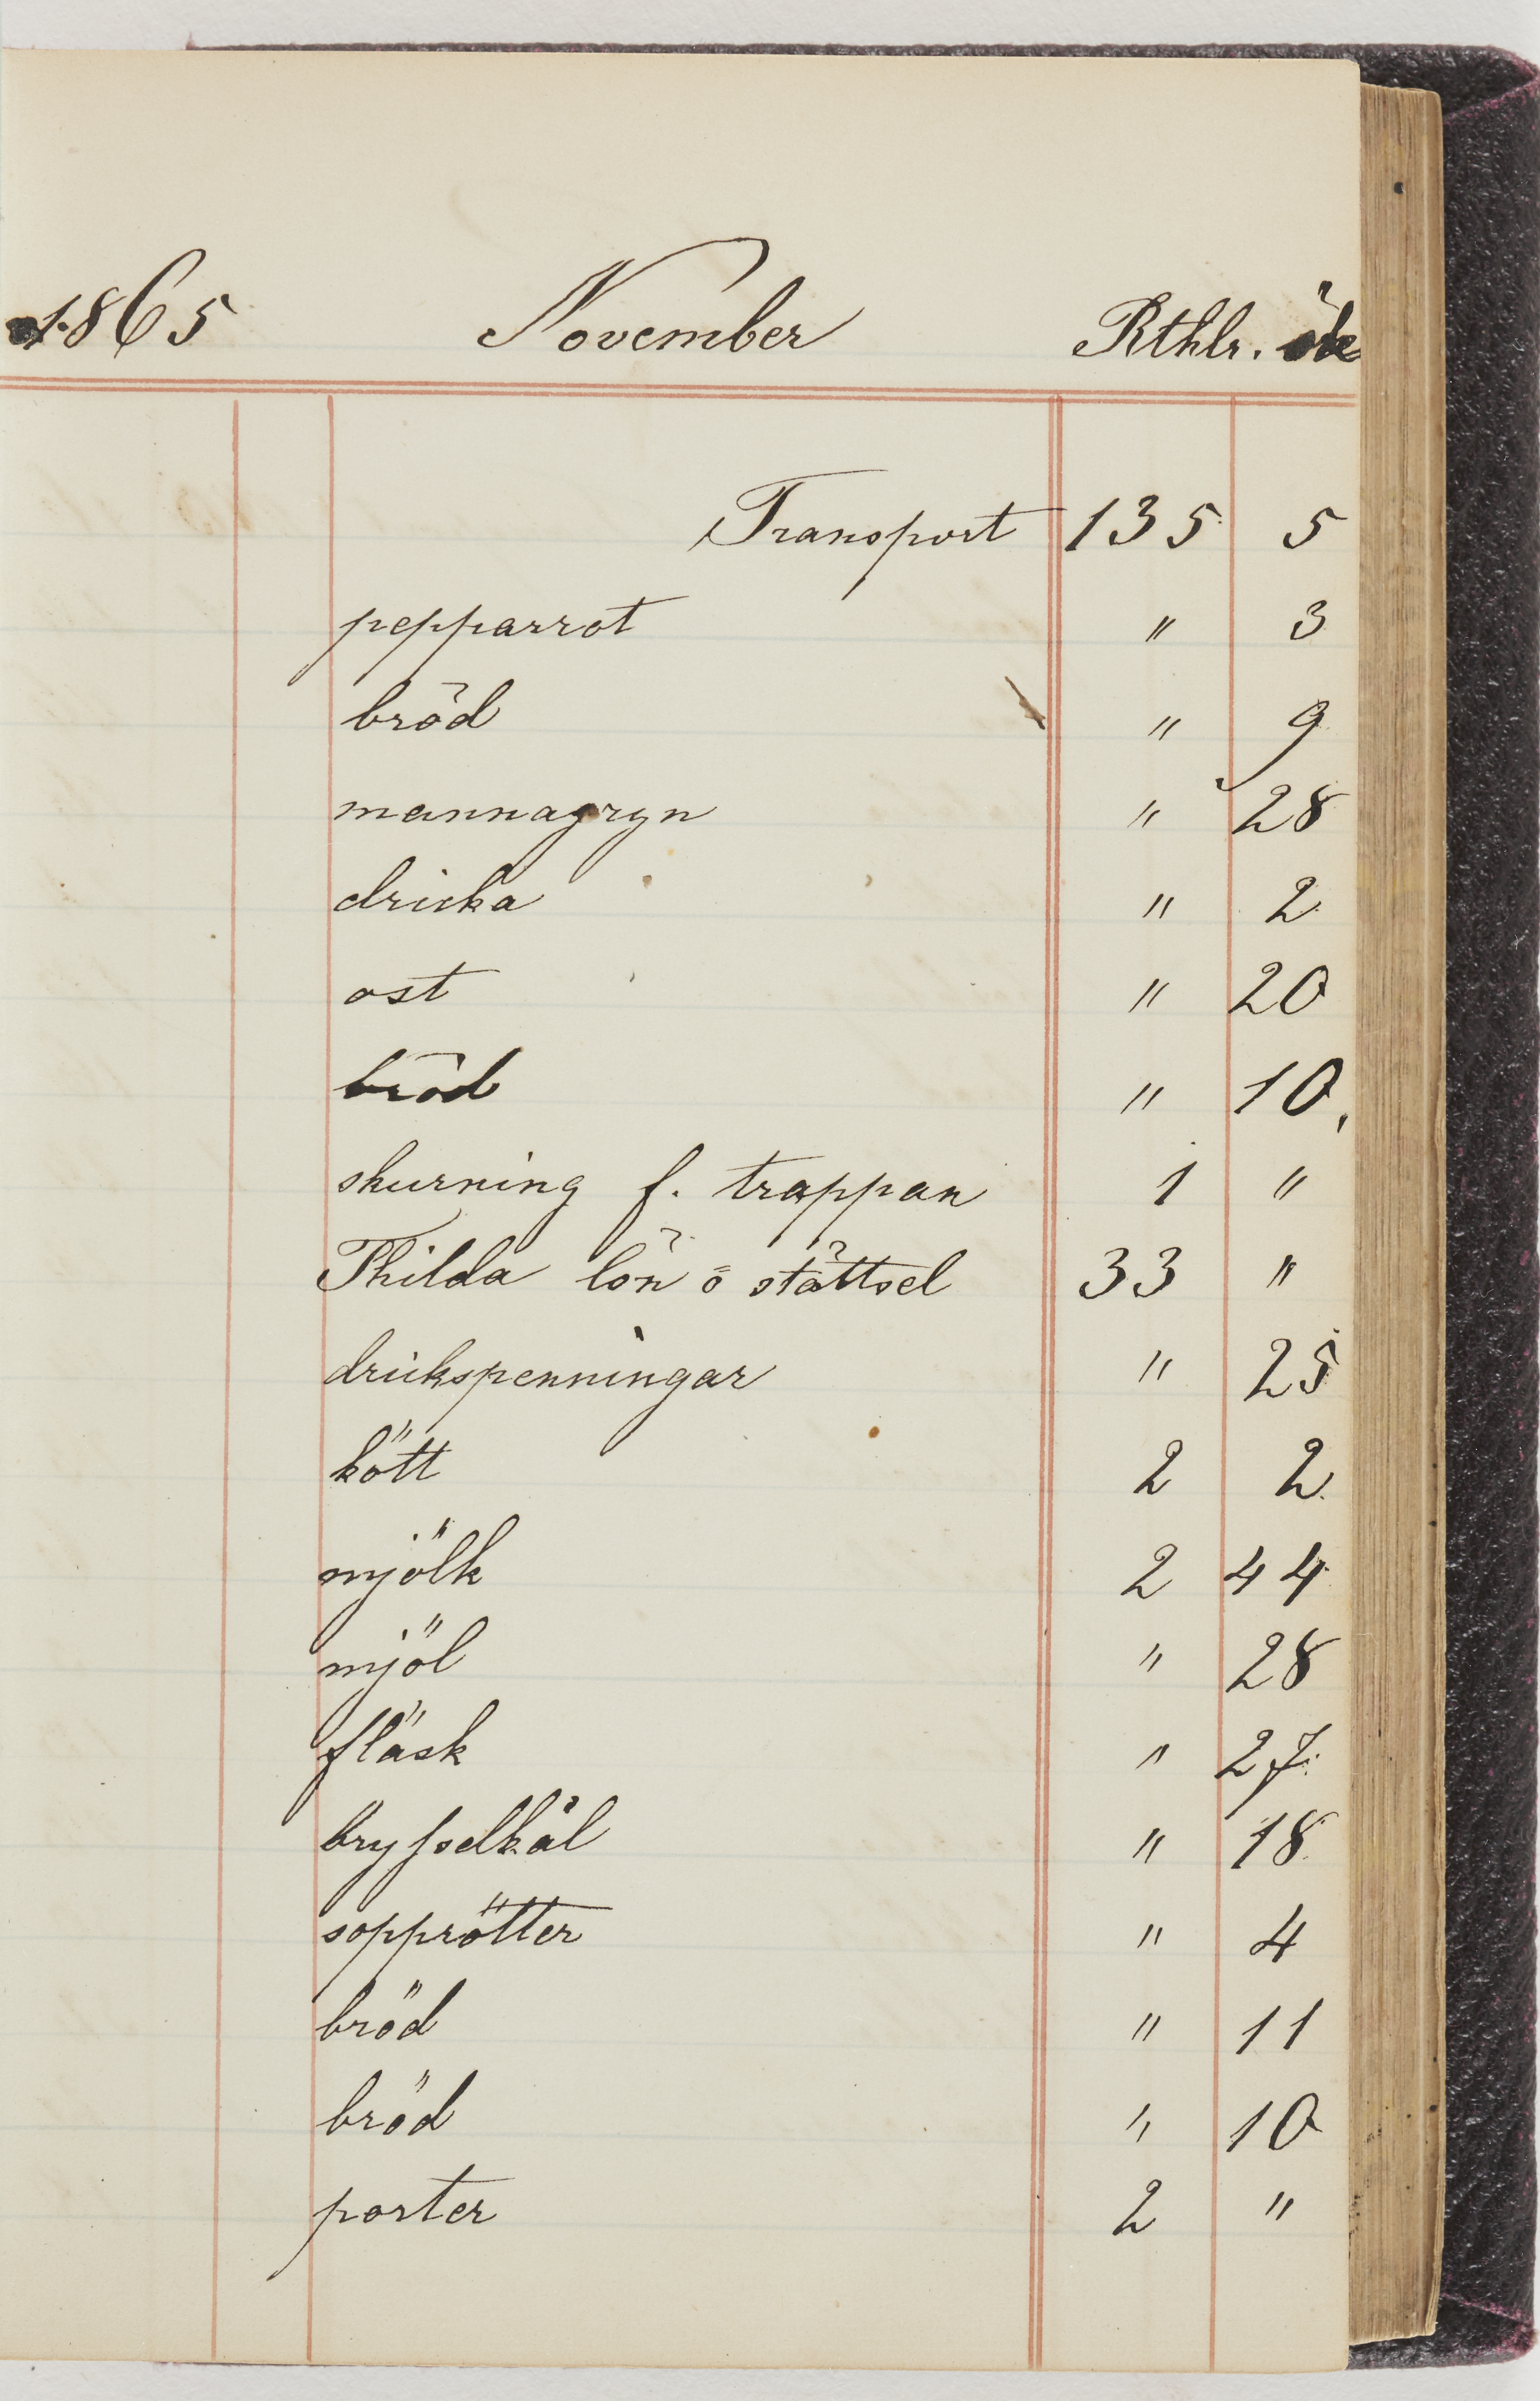 1865 November Rthlr. öre
Transport 135 5
pepparrot " 3
bröd " 9
mannagryn " 28
dricka " 2
ost " 20
bröd " 10
skurning f. trappan 1 "
Thilda lön o stättsel 33 "
drickspenningar " 25
kött 2 2
mjölk 2 44
mjöl " 28
fläsk " 27
brysselkål " 18
sopprötter " 4
bröd " 11
bröd " 10
porter 2 "